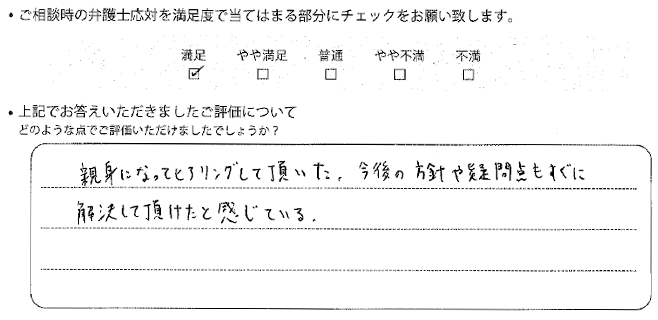 ・ご相談時の弁護士応対を満足度で当てはまる部分にチェックをお願い致します。
満足 やや満足 普通 やや不満 不満
☑ ☐ ☐ ☐ ☐
・上記でお答えいただきましたご評価について
どのような点でご評価いただけましたでしょうか？
親身になってヒアリングして頂いた。今後の方針や疑問点もすぐに
解決して頂けたと感じている。